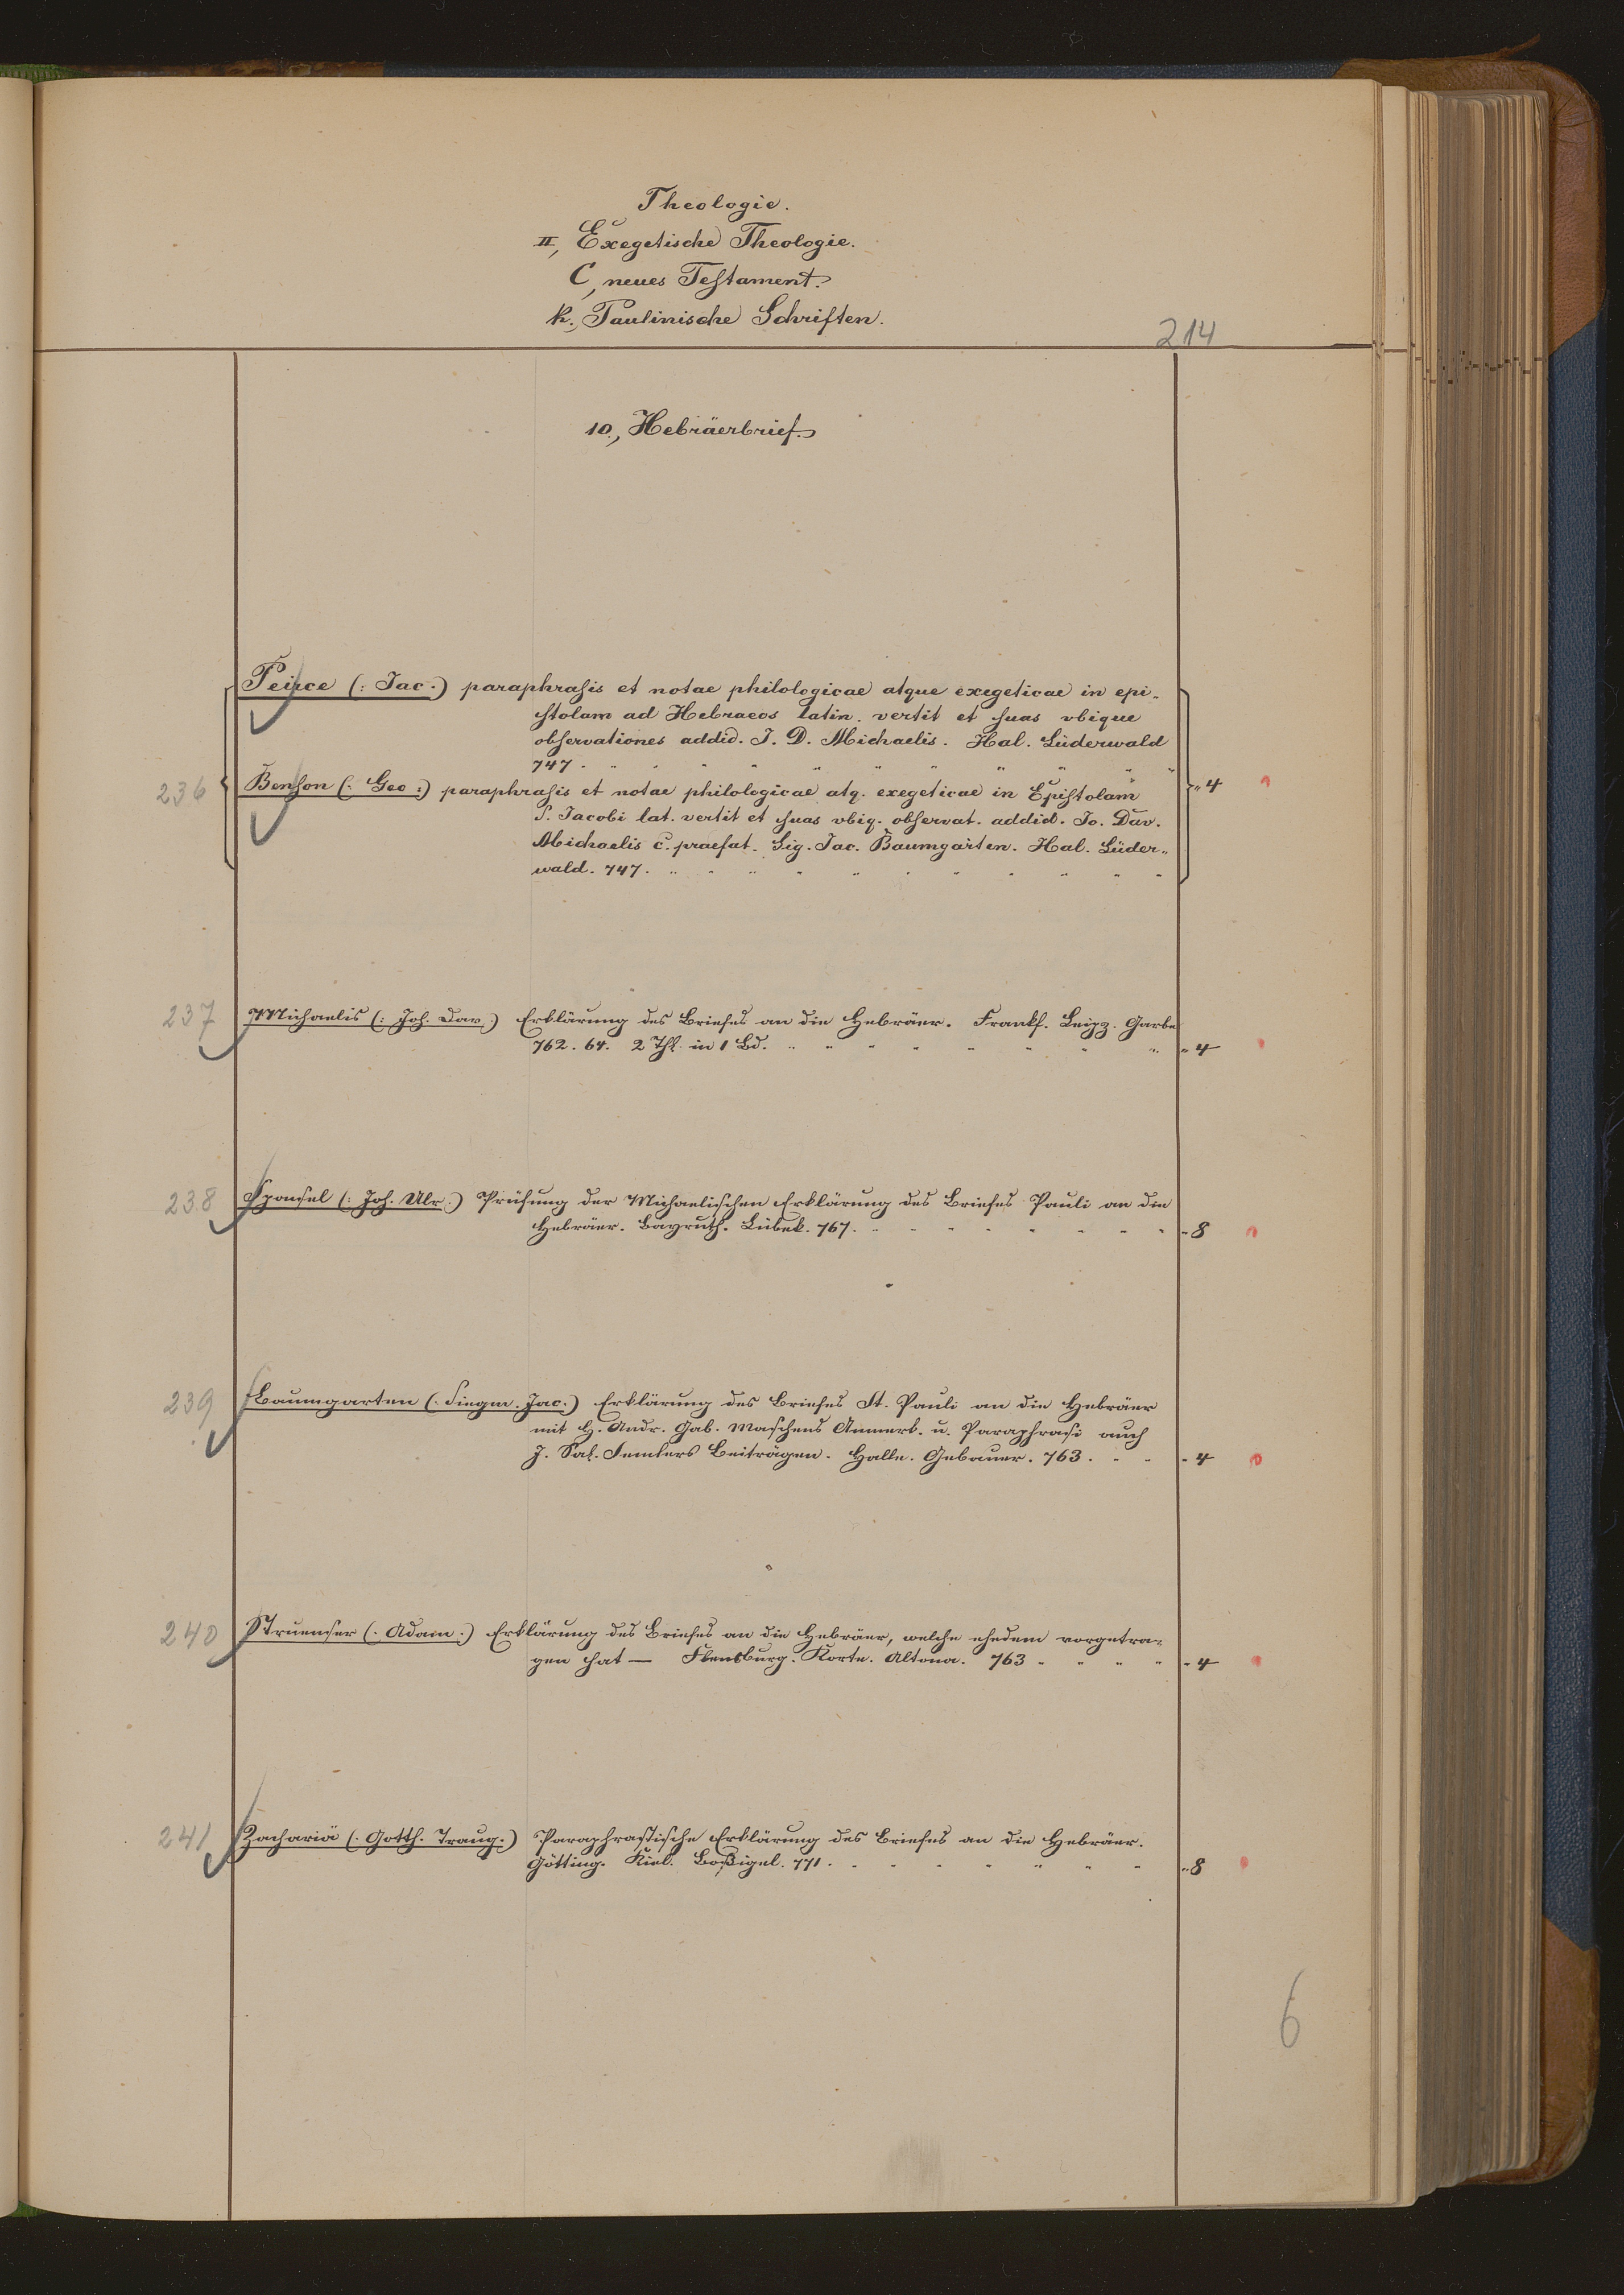 Theologie.
II, Exegetische Theologie.
C, neues Testament.
k., Paulinische Schriften.
214
10., Hebräerbrief.
Peirce (: Jac.) paraphrasis et notae philologicae atque exegeticae in epi-
stolam ad Hebraeos latin. vertit et suas vbique
observationes addid. J. D. Michaelis. Hal. Lüderwald
747.
236 Benson (: Geo :) paraphrasis et notae philologicae atq. exegeticae in Epistolam „4
S. Jacobi lat. vertit et suas vbiq. observat. addid. Jo. Dav.
Michaelis c. praefat. Sig. Jac. Baumgarten. Hal. Lüder-
wald. 747.
237 Michaelis (: Joh. Dav.) Erklärung des Briefes an die Hebräer. Frankf. Leipz. Garbe
762. 64. 2 Thl. in 1 Bd. „4
238 Sponsel (: Joh. Ulr.) Prüfung der Michaelischen Erklärung des Briefes Pauli an die
Hebräer. Bayruth. Lübek. 767. „8
239 Baumgarten (: Siegm. Jac.) Erklärung des Briefes St. Pauli an die Hebräer
mit H. Andr. Gab. Maschens Anmerk. u. Paraphrasi auch
J. Sal. Semlers Beiträgen. Halle. Gebauer. 763. „4
240 Struenser (: Adam :) Erklärung des Briefes an die Hebräer, welche ehedem vorgetra-
gen hat — Flensburg. Korte. Altona. 763 „4
241 Zachariä (: Gotth. Traug.) Paraphrastische Erklärung des Briefes an die Hebräer.
Götting. Kiel. Boßigel. 771. „8
6